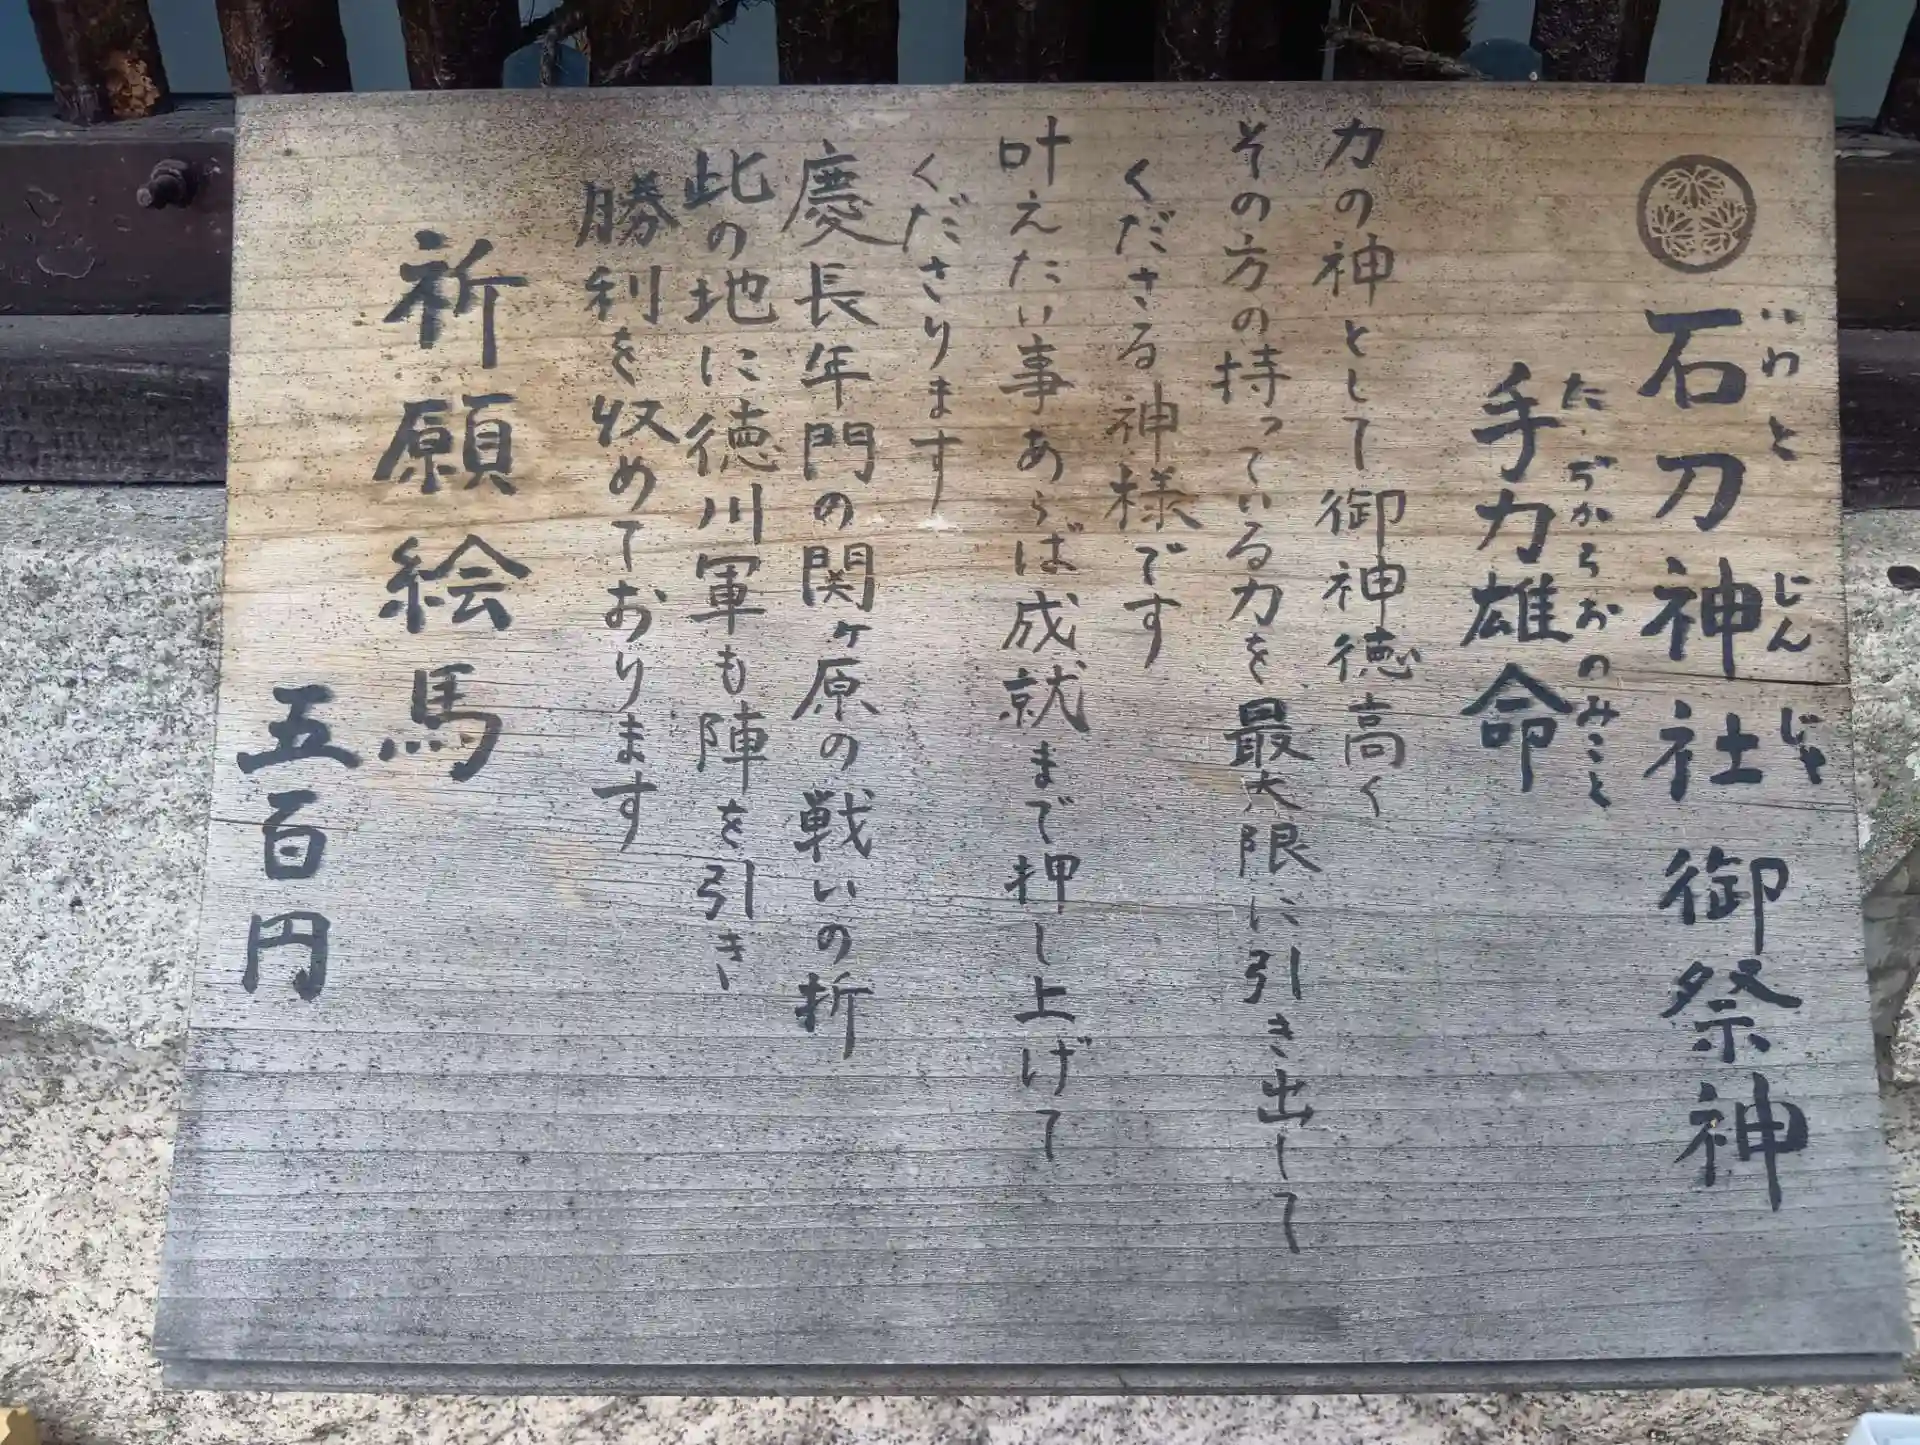 石刀神社 御祭神
いわと じんじゃ
手力雄命
たぢからおのみこと
力の神として御神徳高く
その方の持っている力を最大限に引き出して
くださる神様です
叶えたい事あらば成就まで押し上げて
くださります
慶長年門の関ヶ原の戦いの折
此の地に徳川軍も陣を引き
勝利を収めております
祈願絵馬
五百円